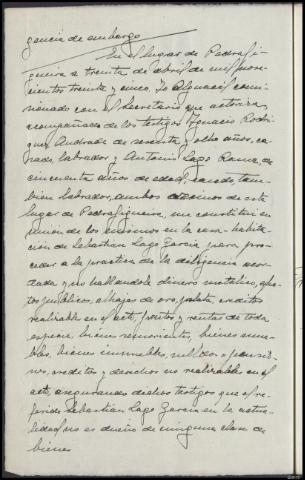 gencia de embargo
En el lugar de Pedrafi-
gueira a treinta de abril de mil nove-
cientos treinta y cinco. Yo Alguacil comi-
sionado con el Secretario que actúa,
acompañados de los testigos Ignacio Rodri-
guez Andrade de sesenta y ocho años, ca-
sado, labrador y Antonio Lago Rama de
cincuenta años de edad, casado, tam-
bien labrador, ambos vecinos de este
lugar de Pedrafigueira, me constituí en
union de los mismos en la casa-habita-
ción de Sebastian Lago Garcia para pro-
ceder a la practica de la diligencia acor-
dada y no hallandole dinero metalico, efec-
tos publicos, alhajas de oro, plata, creditos
realizables en el acto, frutos y rentas de toda
especie, bienes semovientes, bienes mue-
bles, bienes inmuebles, sueldos o pensio-
nes, creditos y derechos no realizables en el
acto, asegurando dichos testigos que el re-
ferido Sebastian Lago Garcia en la actua-
lidad no es dueño de ninguna clase de
bienes